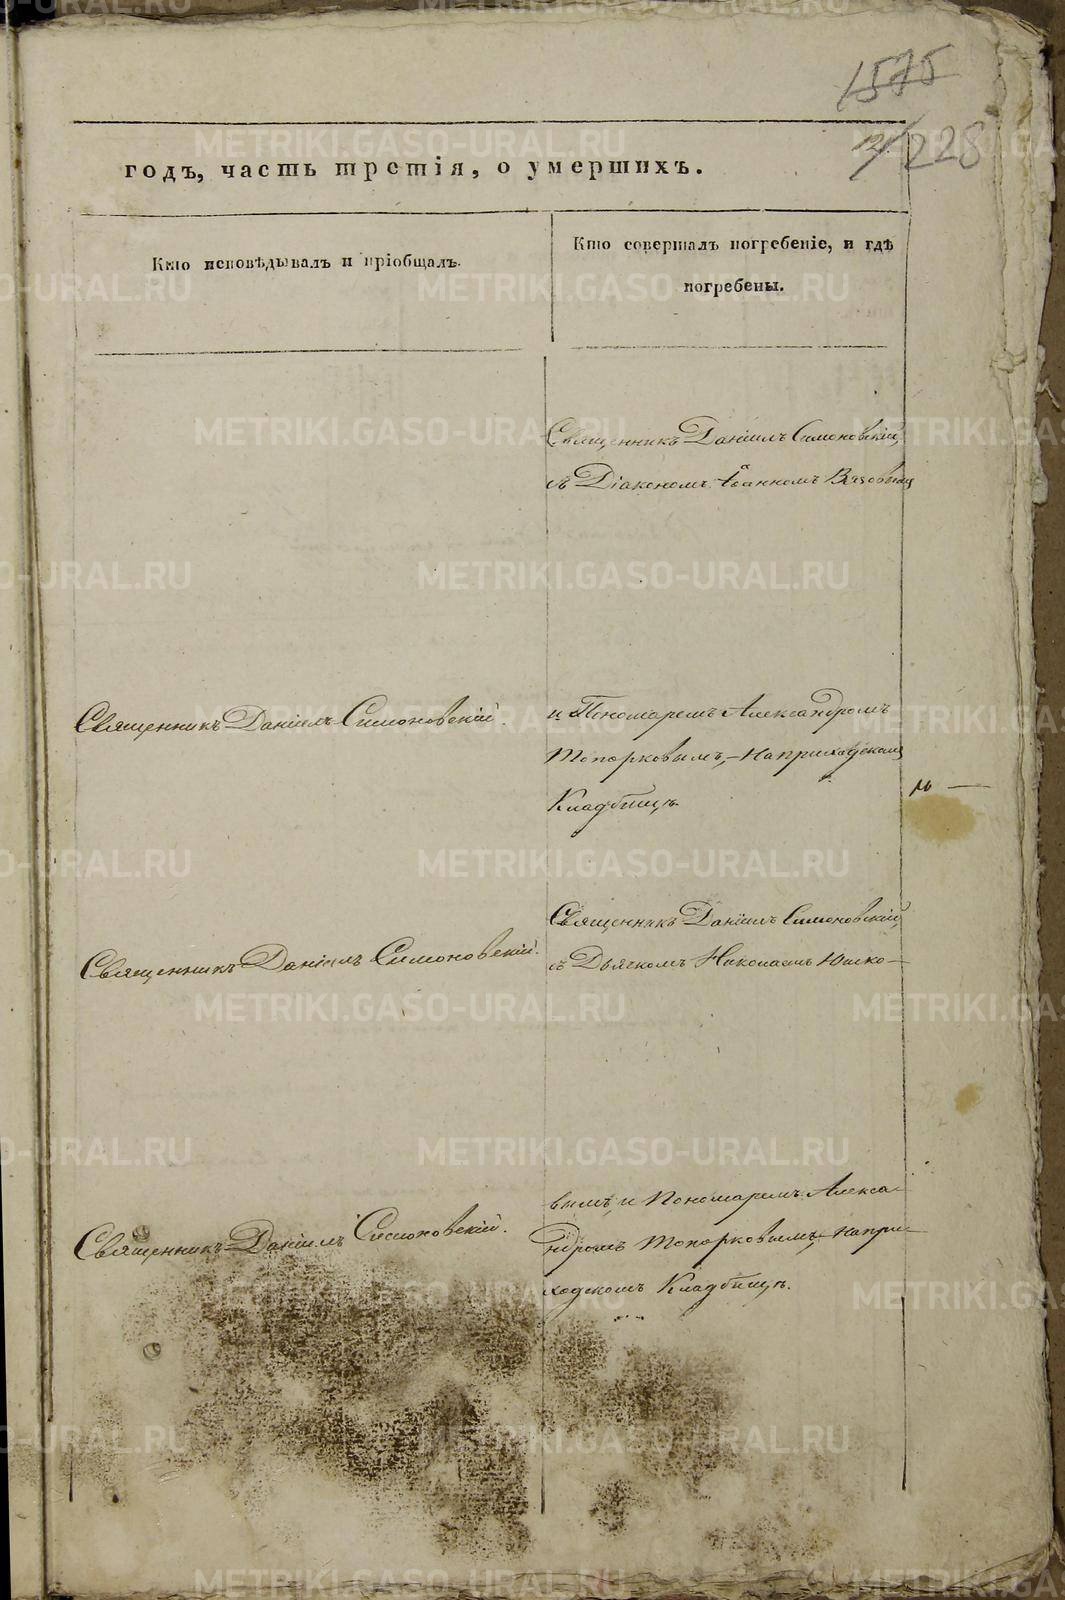 1575
228
годъ, часть третія, о умершихъ.
Кто исповѣдывалъ и пріобщалъ.
Кто совершалъ погребеніе, и гдѣ
погребены.
Священникъ Даніилъ Симоновскій,
съ Діакономъ Іоанномъ
Священникъ Даніилъ Симоновскій.
и Пономаремъ Александромъ
Топорковымъ, – на приходскомъ
Кладбищѣ
Священникъ Даніилъ Симоновскій,
съ Дьячкомъ Николаемъ Юшко-
Священникъ Даніилъ Симоновскій.
вымъ, и Пономаремъ Алекса-
ндромъ Топорковымъ, на при-
ходскомъ Кладбищѣ.
Священникъ Даніилъ Симоновскій.
METRIKI.GASO-URAL.RU